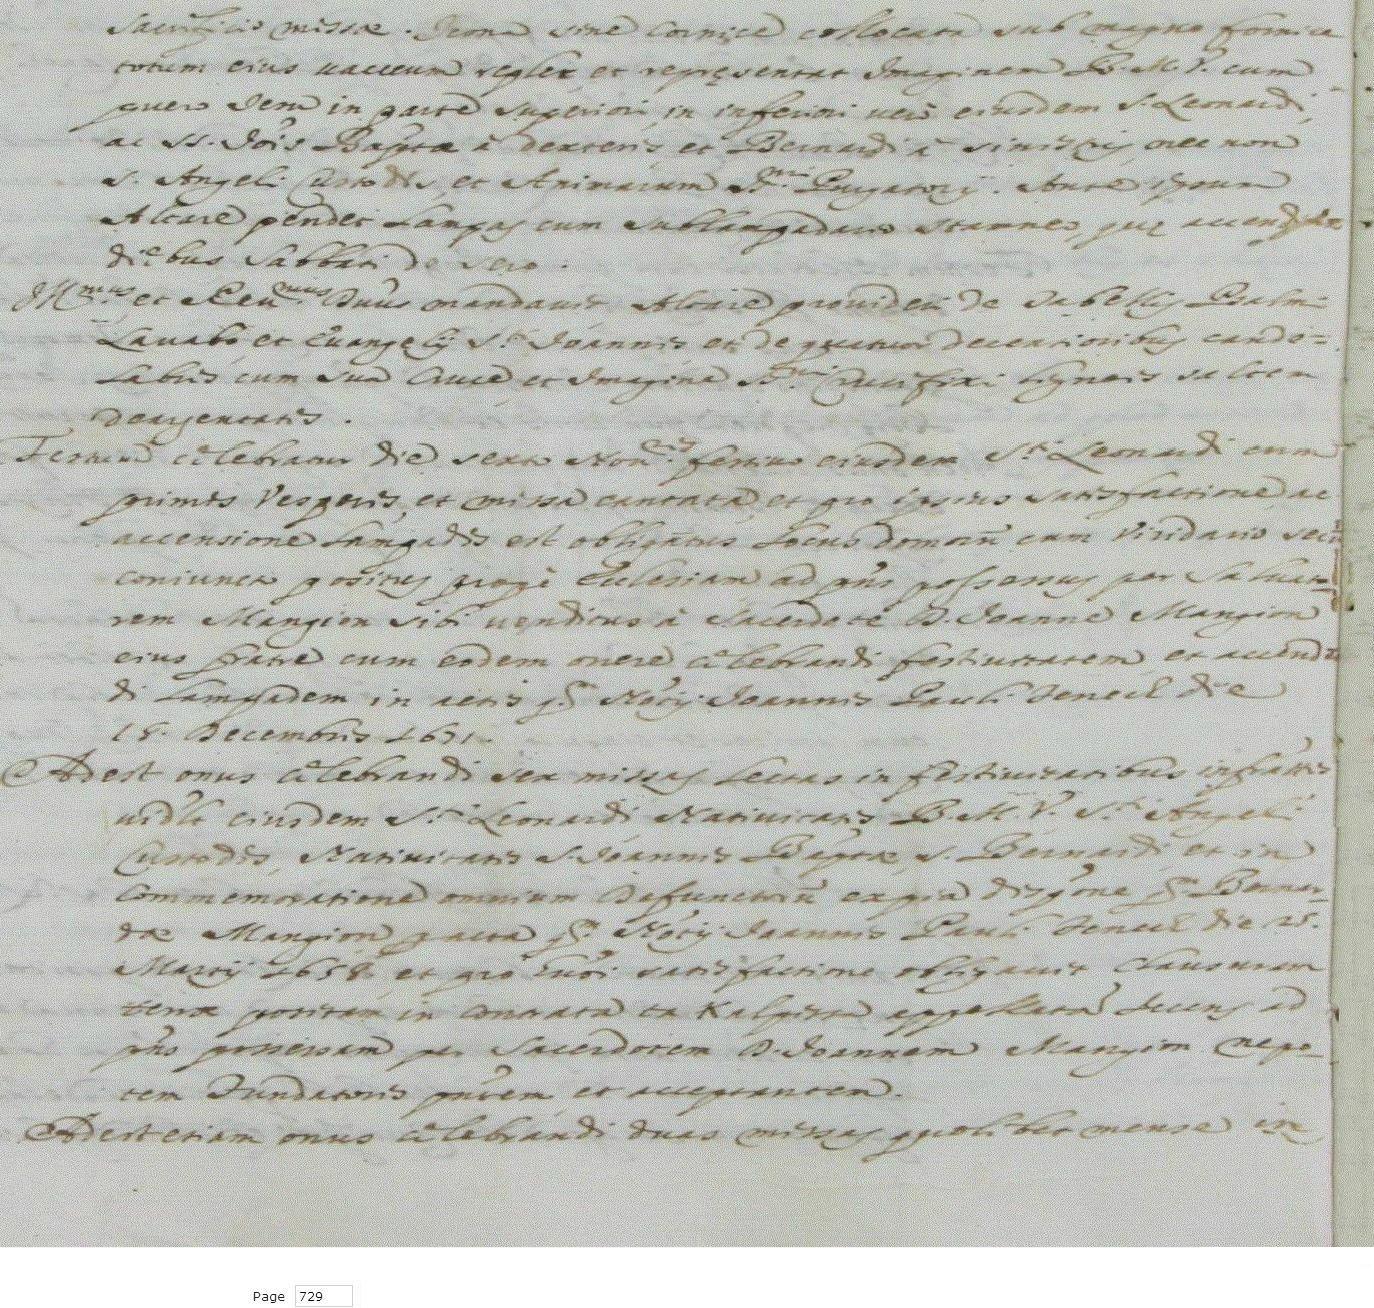 sacrificio missæ. Icona sine Cornice collocata sub magno fornice
totum eius vacuum replet, et repręsentat Imaginem B. M. V. cum
puero Iesu in parte superiori, in inferiori verò eiusdem S. Leonardi,
ac SS. Jois Baptæ à dexteris, et Bernardi à sinistris, nec non
S. Angeli Custodis, et Animarum SSmi Purgatorij. Ante ipsum
Altare pendet Lampas cum sublampadario stamneo, quę accenditur
diebus Sabbati de sero.
Illmus, et Reumus Dnus mandavit Altare provideri de Tabellis Psalmi
Lavabo, et Evangelij Sti Joannis et de quatuor decentioribus cande=
labris cum sua Cruce, et Imagine SSmi Crucifixi ligneis saltem
deargentatis.
Festum celebratur die sexto Novembris festivo eiusdem Sti Leonardi cum
primis Vesperis, et missa cantata, et pro ipsius satisfactione, ac
accensione Lampadis est obligatus Locus domorũ cum Viridario secũ
coniuncto positus propè Ecclesiam ad pñs possessus per Salvato-
rem Mangion sibi venditus à Sacerdote D. Joanne Mangion
eius fratre cum eodem onere celebrandi festivitatem, et accenden
di Lampadem in actis qm Notrij Joannis Pauli Deneul die
18. Decembris 1671.
Adest onus celebrandi sex missas lectas in festivitatibus infrattis
vidlt eiusdem Sti Leonardi, Nativitatis B. M. V. Sti Angeli
Custodis, Nativitatis S. Joannis Baptæ, S. Bernardi, et in
Commemoratione omnium Defunctorũ ex pia dispone qm Bernar-
dæ Mangion facta qm Notrij Joannis Pauli Deneul die 25.
Martij 1658. et pro satisfactione obligavit Clausuram
terræ positam in Contrata ta Kalpizza appellatã ad
pñs possessam per Sacerdotem D. Joannem Mangion nepo-
tem Fundatoris pñtem, et acceptantem.
Adest etiam onus celebrandi duas missas quolibet mense in
Page 729